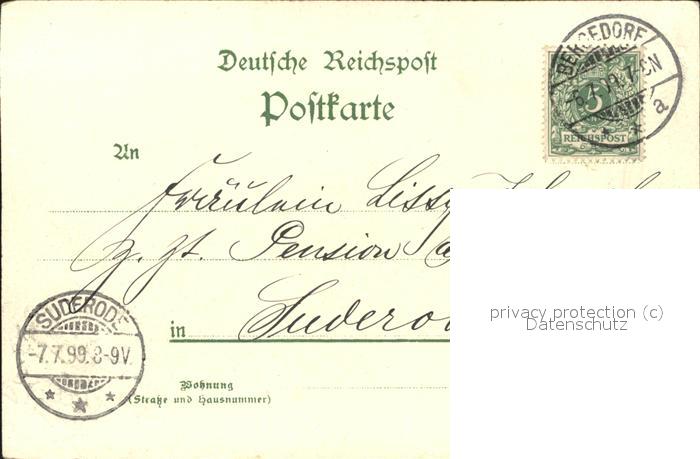 Deutsche Reichspost
Postkarte
BERGEDORF
-6.7.99. 7-8N
a
5
REICHSPOST
An
Fräulein Lissy
z. Zt. Pension
in Suderode
SUDERODE
-7.7.99.8-9V.
Wohnung
(Straße und Hausnummer)
privacy protection (c)
Datenschutz